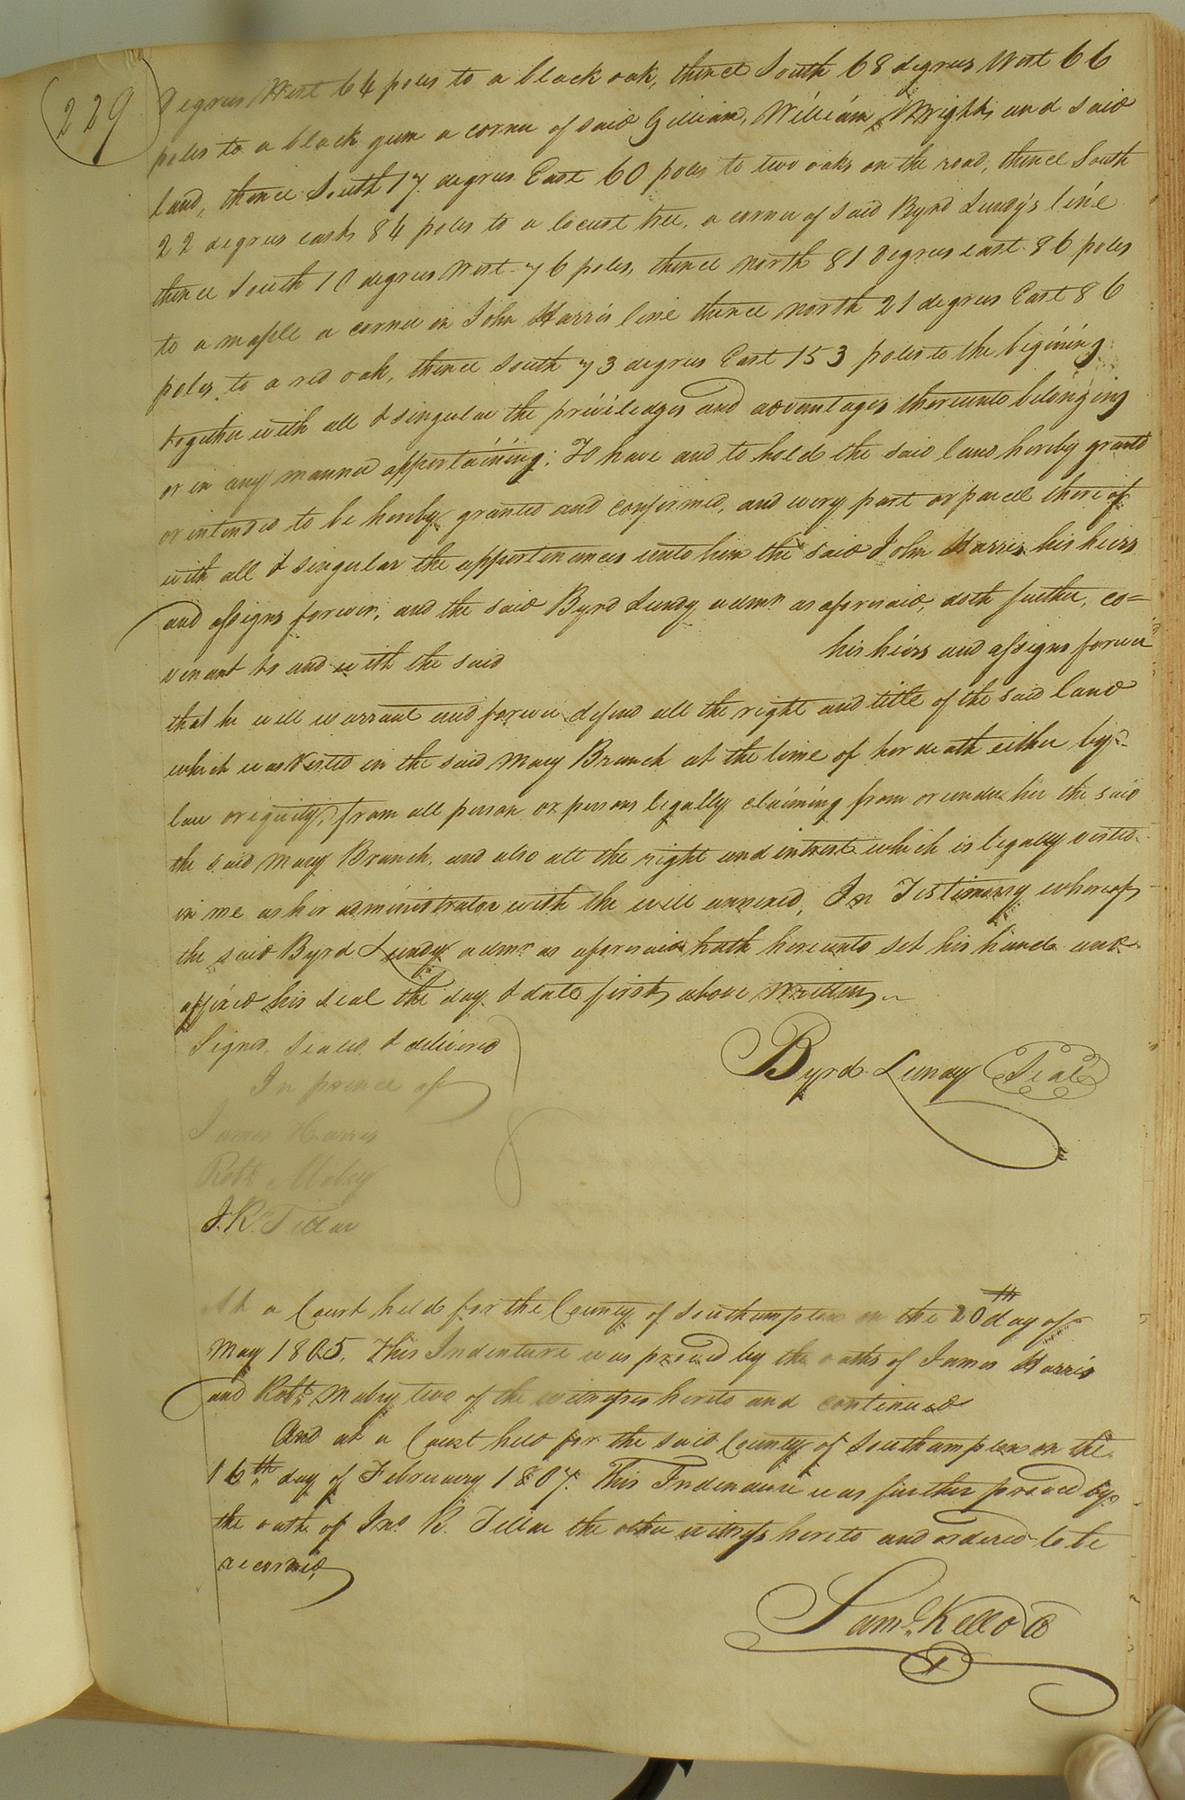 229
degrees West 64 poles to a black oak, thence South 68 degrees West 66
poles to a black gum a corner of said Gilliam, William Wright, and said
land, thence South 17 degrees East 60 poles to two oaks on the road, thence South
22 degrees east, 84 poles to a locust tree, a corner of said Byrd Lundy's line
thence South 10 degrees West 76 poles, thence North 81 Degrees east 86 poles
to a maple a corner in John Harris line thence north 21 degrees East 86
poles, to a red oak, thence South 73 degrees East 153 poles to the begining
together with all & singular the priviledges and advantages thereunto belonging
or in any manner appertaining; To have and to hold the said land hereby granted
or intended to be hereby granted and confirmed, and every part or parcel thereof
with all & singular the appertenances unto him the said John Harris his heirs
and assigns forever, and the said Byrd Lundy admr as aforesaid, doth further, co=
venant to and with the said his heirs and assigns forever
that he will warrant and forever defend all the right and title of the said land
which was Vested in the said Mary Branch at the time of her death either by
law or equity, from all person or persons legally claiming from or under her the said
the said Mary Branch, and also all the right and interest which is legally vested
in me as her administrator with the will annexed, In Testimony whereof
the said Byrd Lundy admr as aforesaid hath hereunto set his hand and
affixed his seal the day & date first above Written
Signed, Sealed, & delivered
In presence of
Byrd Lundy Seal
James Harris
Robt Mabry
J. R. Tillar
At a Court held for the County of Southampton on the 20th day of
May 1805. This Indenture was proved by the oaths of James Harris
and Robt Mabry two of the witnesses hereto and continued
And at a Court held for the said County of Southampton on the
16th day of February 1807. This Indenture was further proved by
the oath of Jno R. Tillar the other witness hereto and ordered to be
recorded,
Saml Kello C